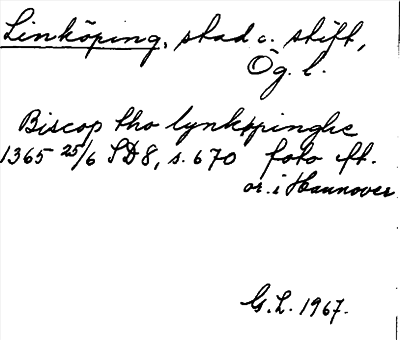 Linköping, stad o. stift,
Ög. l.
Biscop tho lynköpinghe
1365 25/6 SD 8, s. 670 foto eft.
or. i Hannover
G.L. 1967.